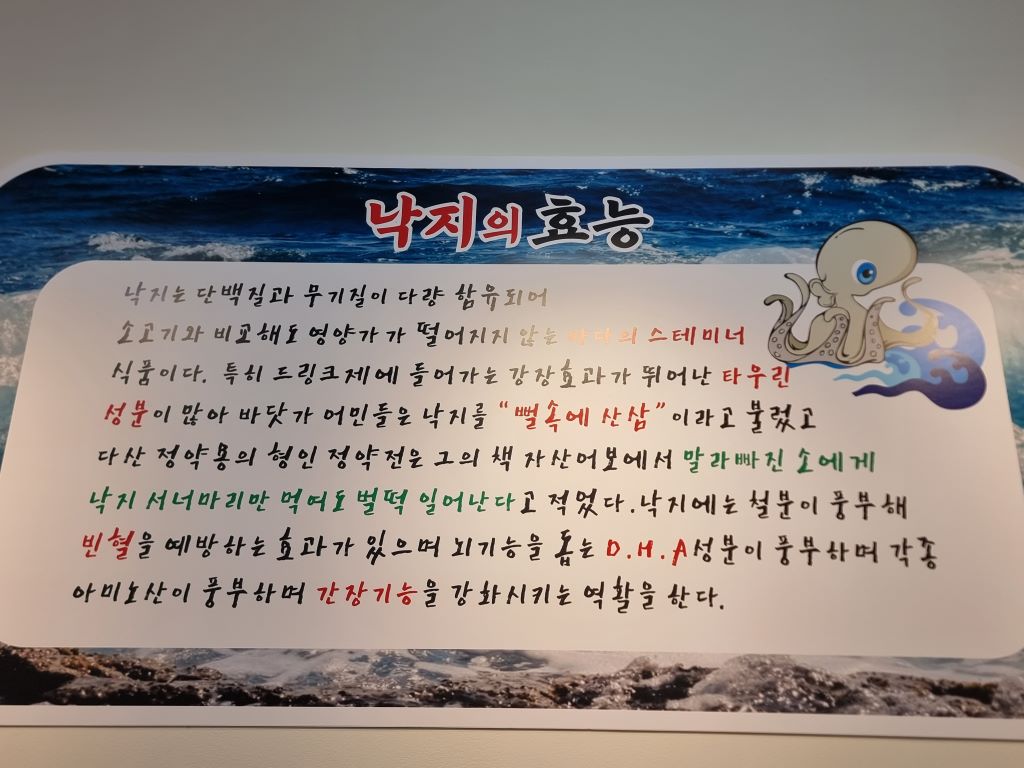 낙지의 효능
낙지는 단백질과 무기질이 다량 함유되어
소고기와 비교해도 영양가가 떨어지지 않는 바다의 스테미너
식품이다. 특히 드링크제에 들어가는 강장효과가 뛰어난 타우린
성분이 많아 바닷가 어민들은 낙지를 “뻘속에 산삼”이라고 불렀고
다산 정약용의 형인 정약전은 그의 책 자산어보에서 말라빠진 소에게
낙지 서너마리만 먹여도 벌떡 일어난다고 적었다.낙지에는 철분이 풍부해
빈혈을 예방하는 효과가 있으며 뇌기능을 돕는 D.H.A성분이 풍부하며 각종
아미노산이 풍부하며 간장기능을 강화시키는 역활을 한다.